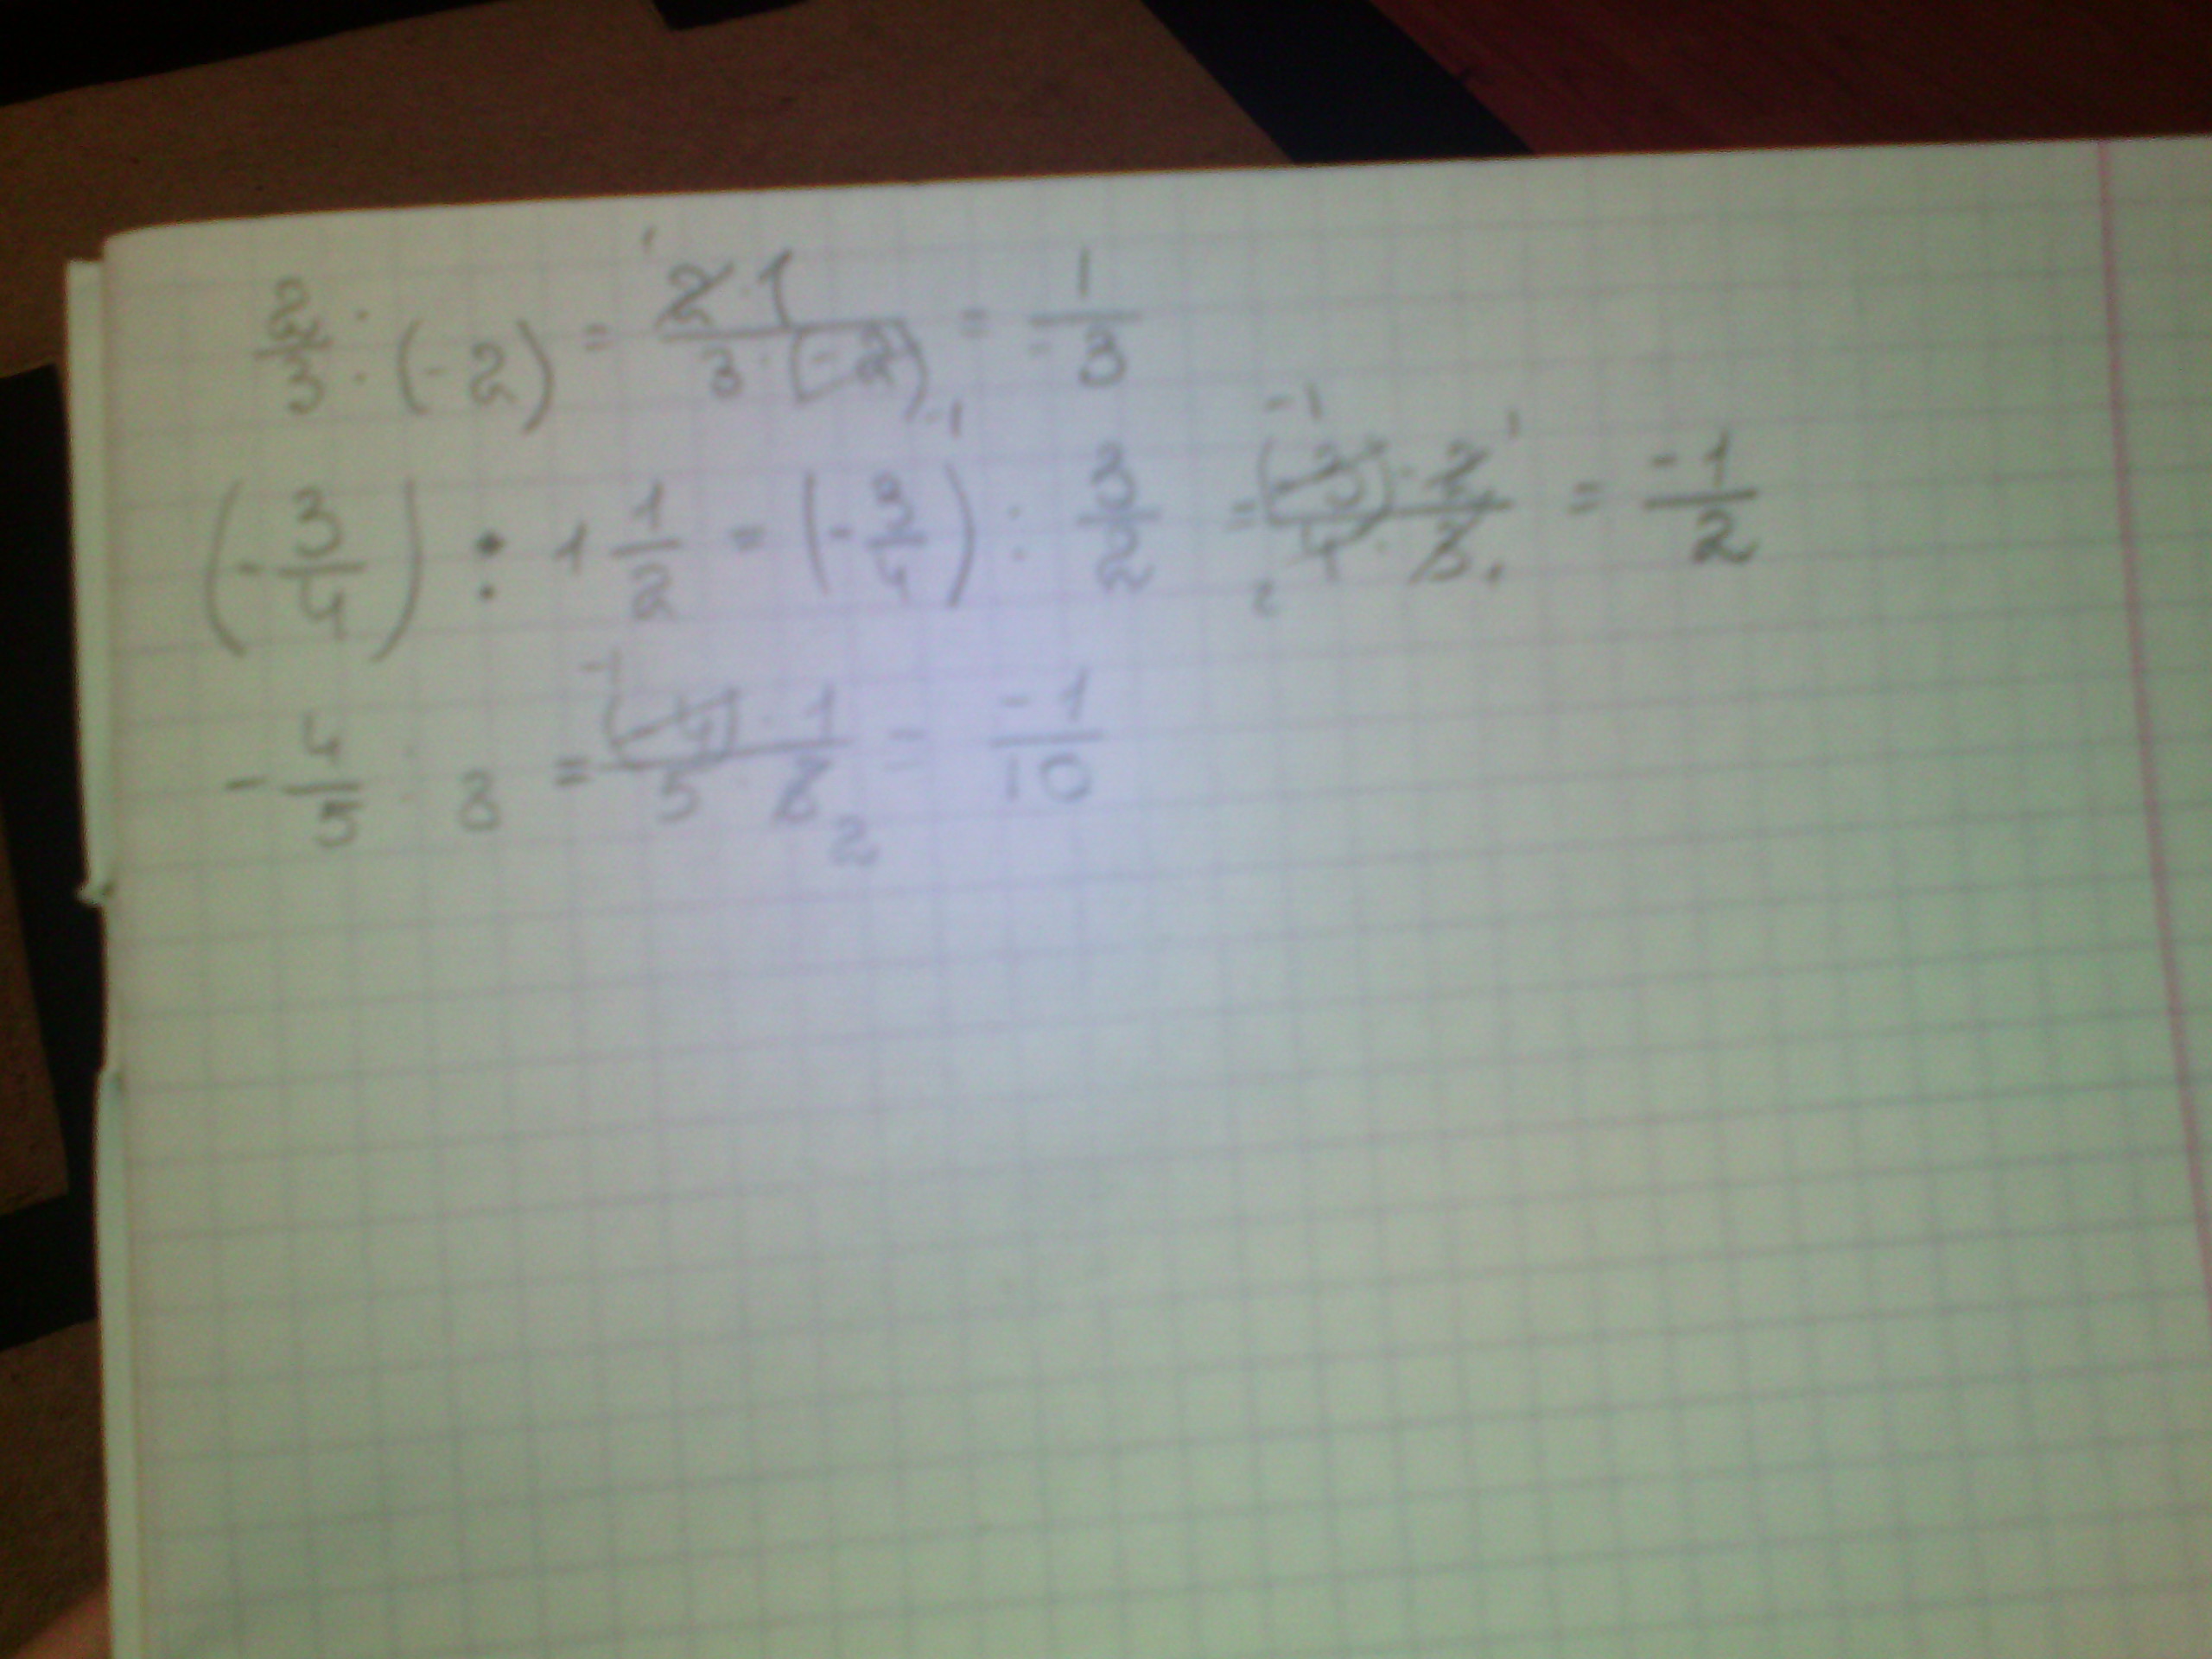 2/3 : (-2) = 2·1 / 3·(-2) = 1/-3
(-3/4) : 1 1/2 = (-3/4) : 3/2 = (-3)·2 / 4·3 = -1/2
-4/5 : 8 = (-4)·1 / 5·8 = -1/10